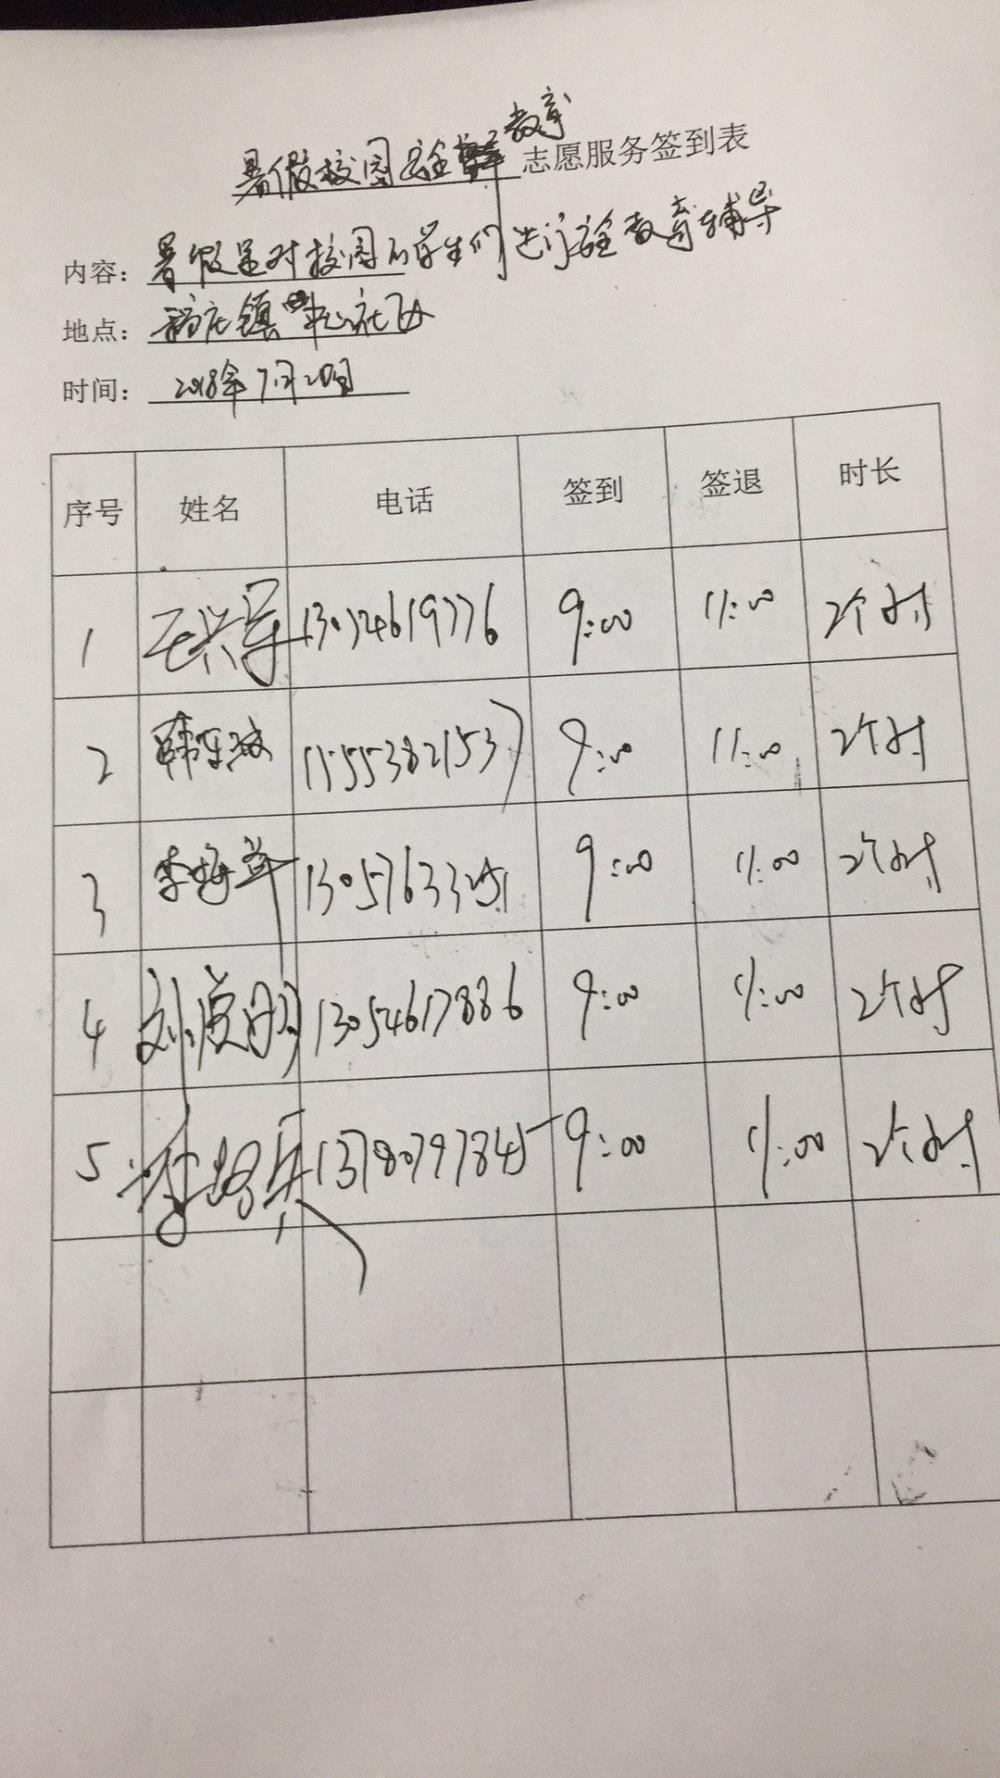 暑假校园安全教育志愿服务签到表
内容：暑假是对校园的学生们进行安全教育辅导
地点：镇中心社区
时间：2018年7月20日
序号 姓名 电话 签到 签退 时长
1 王兴军 13 9:00 11:00 2个小时
2 韩 15553821537 9:00 11:00 2个小时
3 李海 1305763325 9:00 11:00 2个小时
4 刘 13054617886 9:00 11:00 2个小时
5 李 13780797845 9:00 11:00 2个小时